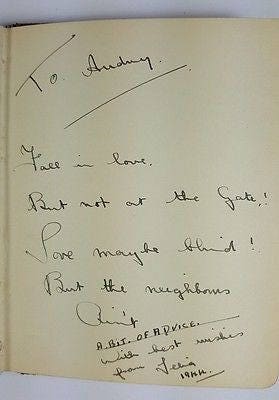 To Audrey.
Fall in love.
But not at the Gate,!
Love maybe blind!
But the neighbours
Ain't
A BIT OF ADVICE.
With best wishes
from
1944.